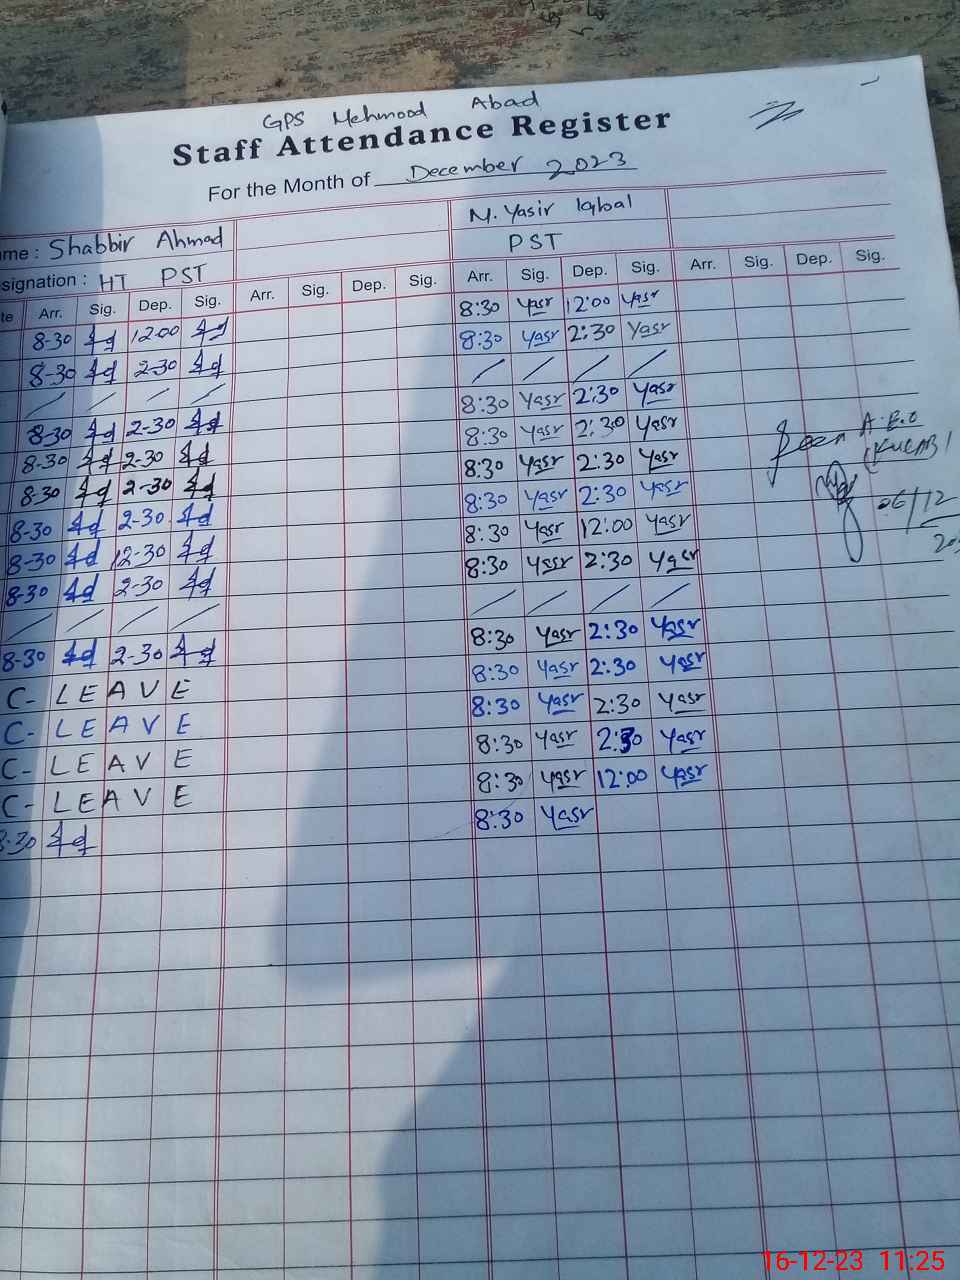 GPS Mehmood Abad
Staff Attendance Register
For the Month of December 2023
me : Shabbir Ahmad M. Yasir Iqbal
signation : HT PST PST
te Arr. Sig. Dep. Sig. Arr. Sig. Dep. Sig. Arr. Sig. Dep. Sig. Arr. Sig. Dep. Sig.
8-30 12-00 8:30 Yasr 12:00 Yasr
8-30 2-30 8:30 Yasr 2:30 Yasr
/ / / / / / / /
8-30 2-30 8:30 Yasr 2:30 Yasr
8-30 2-30 8:30 Yasr 2:30 Yasr
8-30 2-30 8:30 Yasr 2:30 Yasr
8-30 2-30 8:30 Yasr 2:30 Yasr
8-30 12-30 8:30 Yasr 12:00 Yasr
8-30 2-30 8:30 Yasr 2:30 Yasr
/ / / / / / / /
8-30 2-30 8:30 Yasr 2:30 Yasr
C- LEAVE 8:30 Yasr 2:30 Yasr
C- LEAVE 8:30 Yasr 2:30 Yasr
C- LEAVE 8:30 Yasr 2:30 Yasr
C- LEAVE 8:30 Yasr 12:00 Yasr
8:30 8:30 Yasr
Seen A.E.O
06/12
16-12-23 11:25